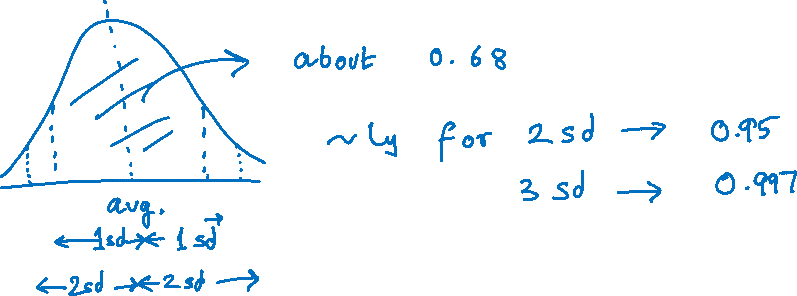 about 0.68
~ly for 2 sd → 0.95
3 sd → 0.997
avg.
1sd 1 sd
2sd 2 sd